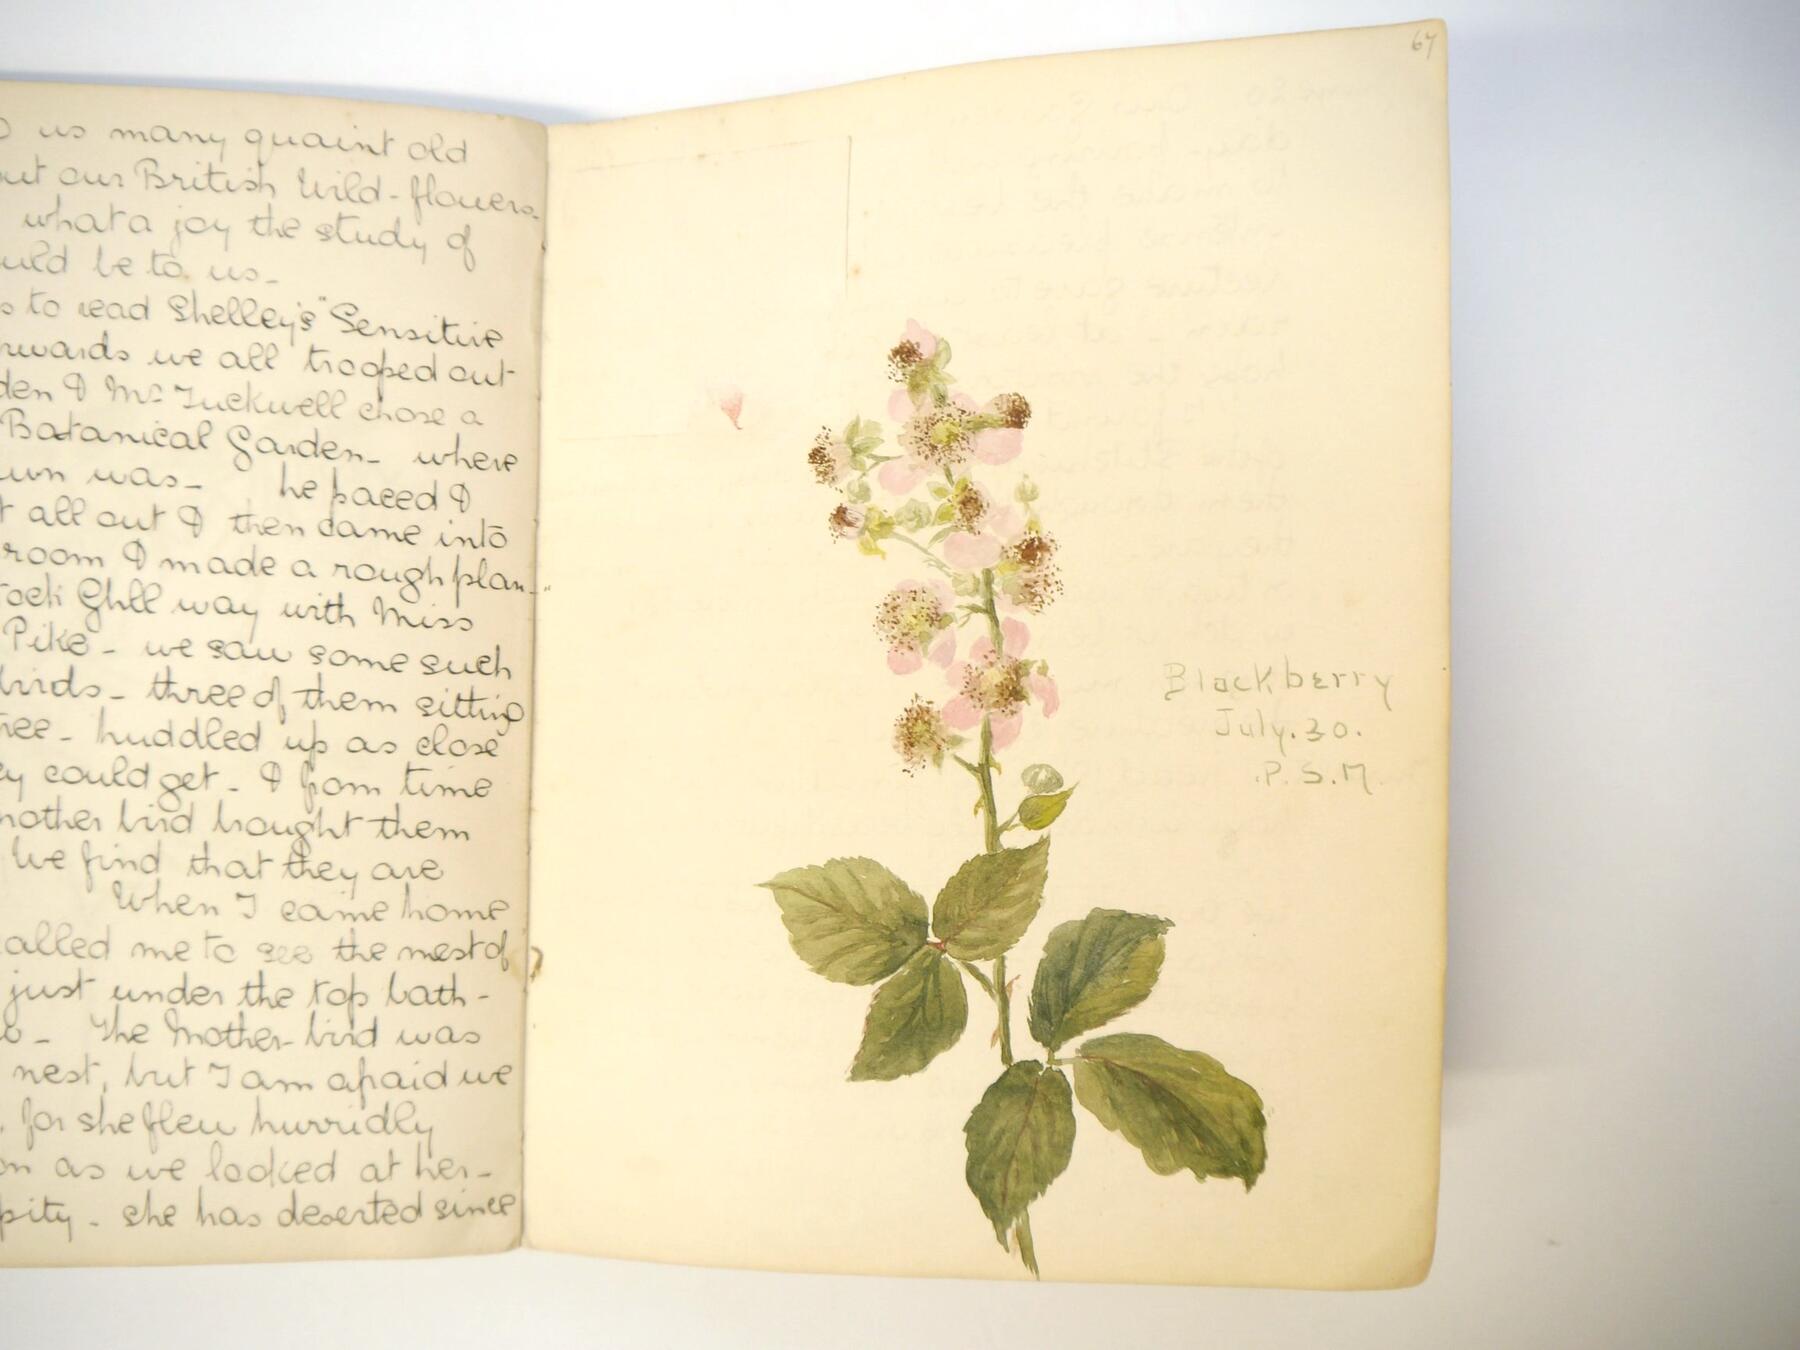 us many quaint old
out our British Wild-flowers.
what a joy the study of
uld be to us-
s to read Shelley's "Sensitive
rwards we all trooped out
den & Mr Tuckwell chose a
Botanical Garden- where
un was- he paced &
t all out & then came into
room & made a rough plan-"
tock Ghll way with Miss
Pike- we saw some such
birds- three of them sitting
ree- huddled up as close
ey could get- & from time
nother bird brought them
We find that they are
When I came home
called me to see the nest of
just under the top bath-
The Mother-bird was
nest, but I am afraid we
for she flew hurridly
on as we looked at her-
pity- she has deserted since
67
Blackberry
July.30.
.P.S.M.